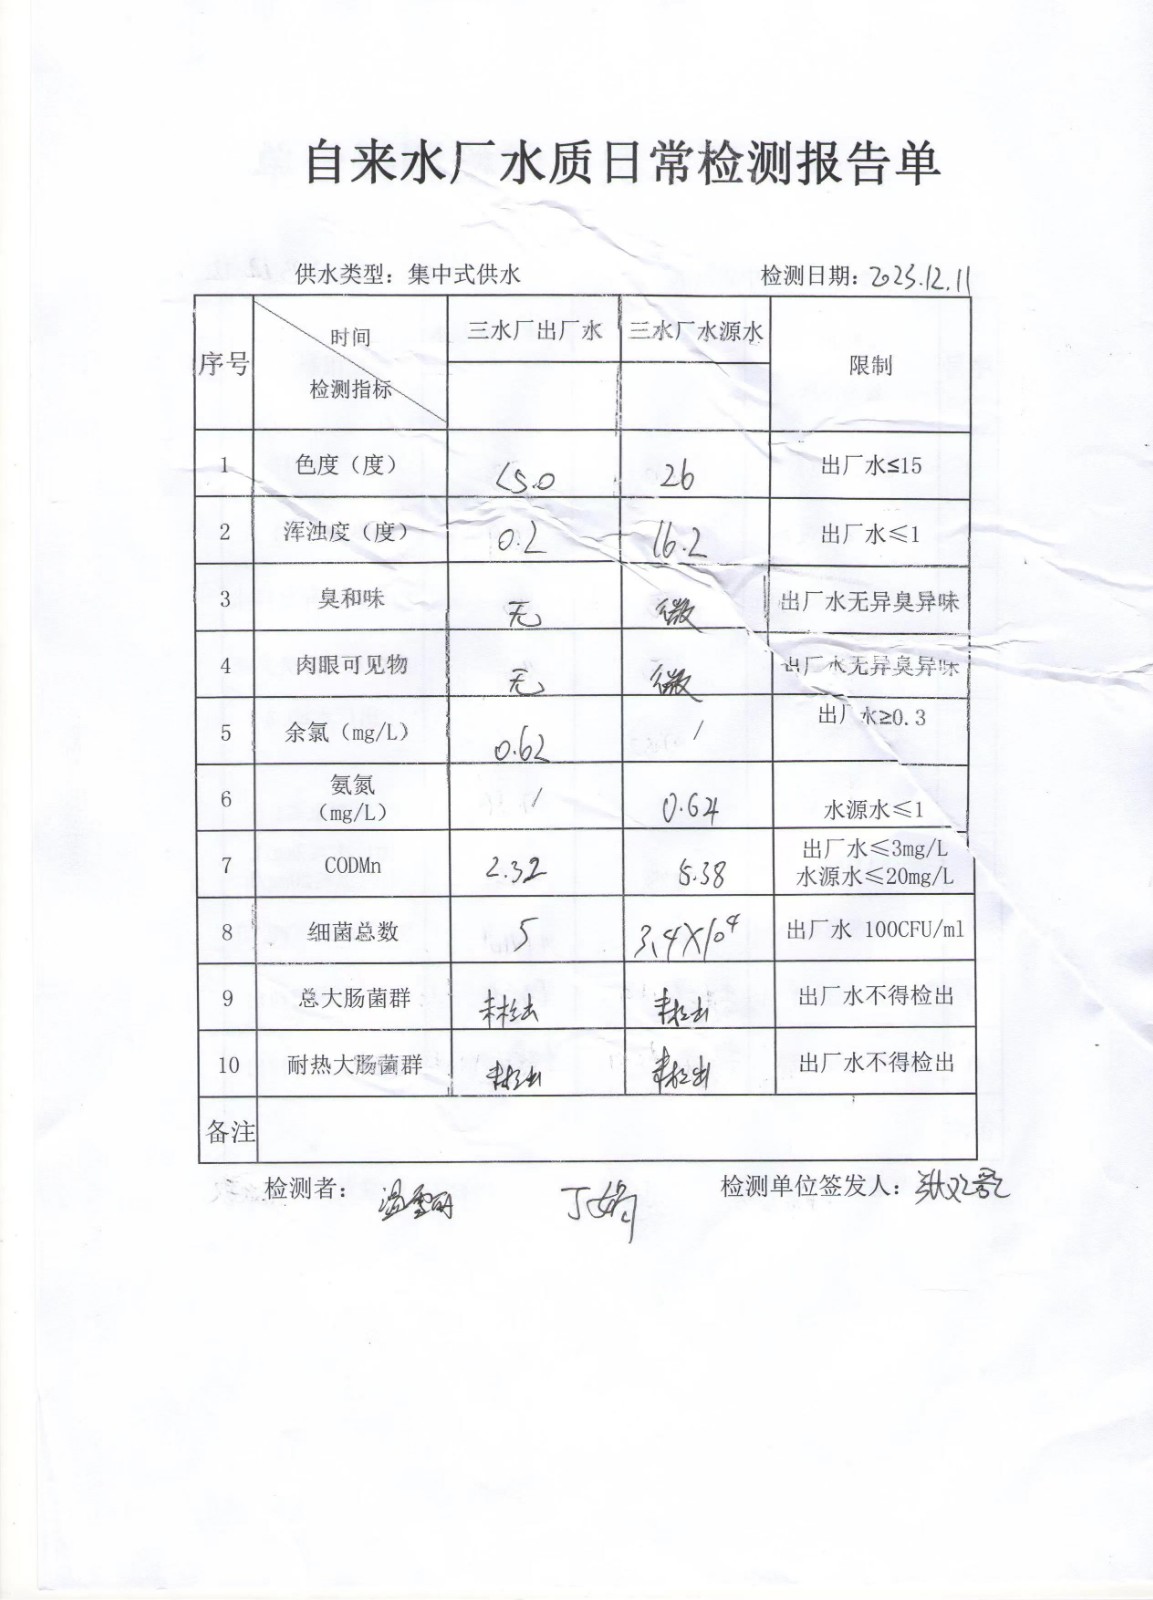 自来水厂水质日常检测报告单
供水类型：集中式供水 检测日期：2025.12.11
序号 时间 检测指标 三水厂出厂水 三水厂水源水 限制
1 色度（度） <5.0 26 出厂水≤15
2 浑浊度（度） 0.2 16.2 出厂水≤1
3 臭和味 无 微 出厂水无异臭异味
4 肉眼可见物 无 微 出厂水无异臭异味
5 余氯（mg/L） 0.62 / 出厂水≥0.3
6 氨氮（mg/L） / 0.64 水源水≤1
7 CODMn 2.32 5.38 出厂水≤3mg/L
水源水≤20mg/L
8 细菌总数 5 3.4×10⁴ 出厂水 100CFU/ml
9 总大肠菌群 未检出 未检出 出厂水不得检出
10 耐热大肠菌群 未检出 未检出 出厂水不得检出
备注
检测者： 检测单位签发人：